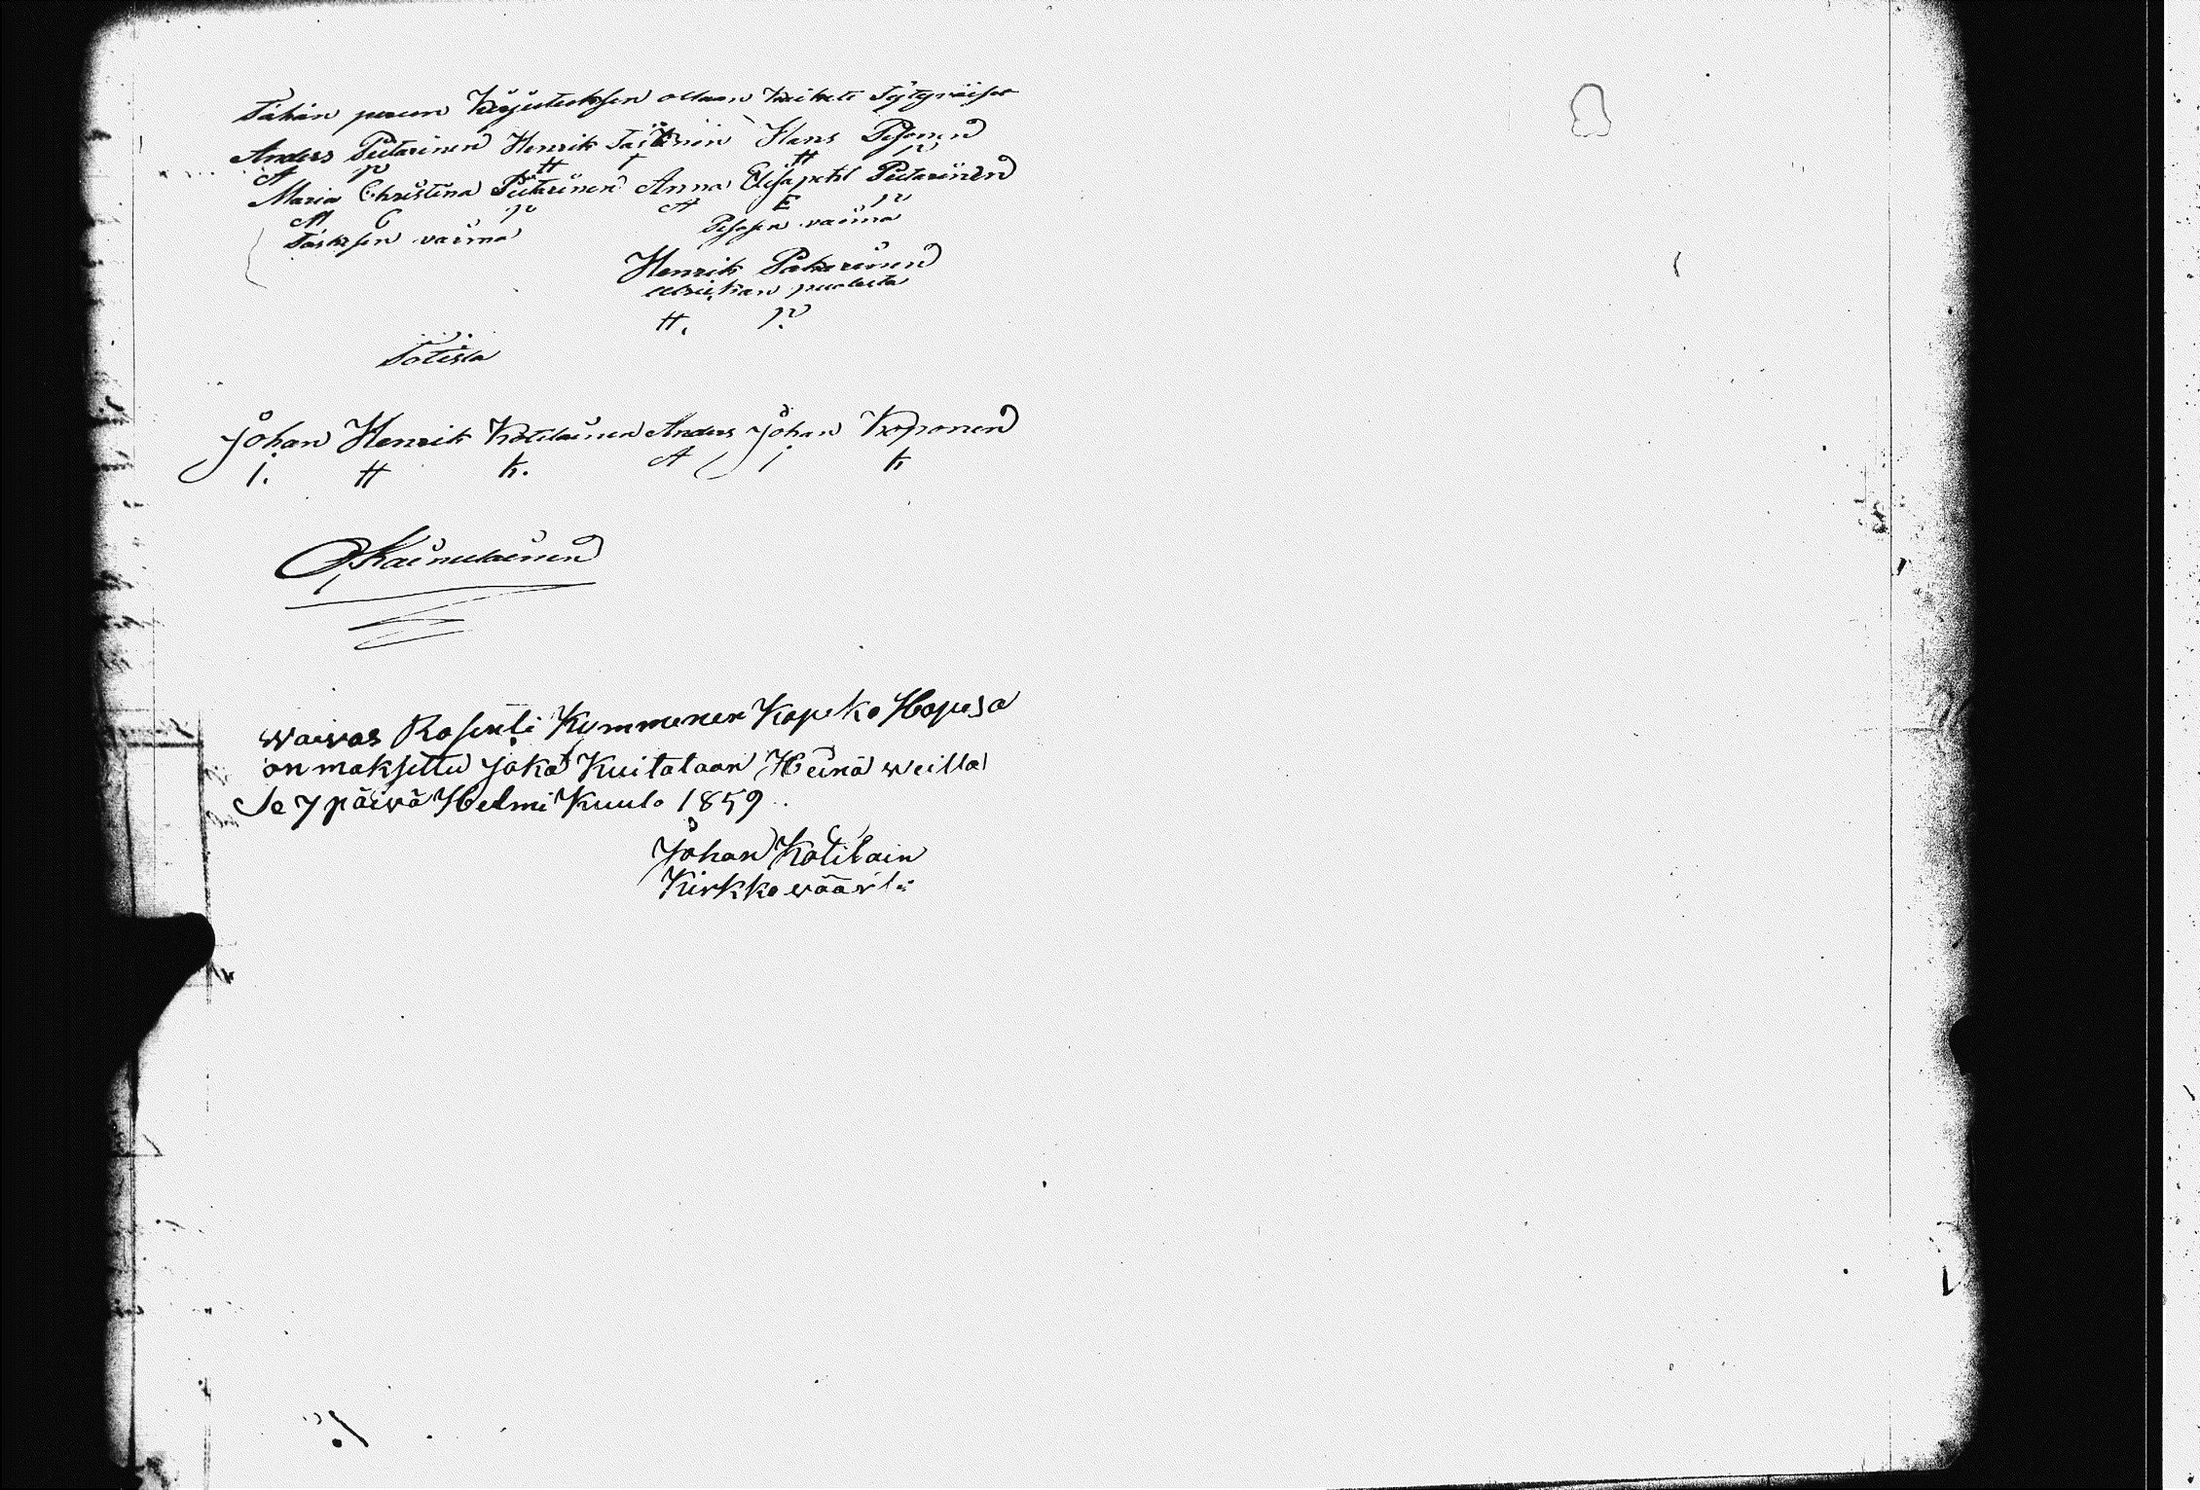 Tähän perun Kirjutuksen ollaan kaikete Tytyväiset
Anders Pietarinen Henrik Täskinin Hans Pesonen
A P H T H P
Maria Christina Pietarinen Anna Elisapetd Pietarinen
M C P A E P
Täsksen vaimo Pesosen vaimo
Henrik Pakarinen
Ulriikan puolesta
H. P.
Totista
Johan Henrik Kotilainen Anders Johan Kopponen
I. H K. A I K
Kainulainen
Waivas Rosenti Kymmenen Kopeko Hopesa
on maksettu joka Kuitataan Heinä weilla
Se 7 päivä Helmi Kuulo 1859
Johan Kotilain
Kirkko wäärti